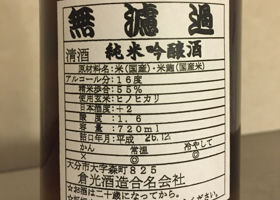 無濾過
清酒 純米吟醸酒
原材料名：米（国産）・米麹（国産米）
アルコール分：16度
精米歩合：55%
使用玄米：ヒノヒカリ
日本酒度：+2
酸度：1.6
容量：720ml
詰口年月：平成 26.12
かん 常温 冷やして
× ◎ ◎
大分市大字森町825
倉光酒造合名会社
☆お酒は二十歳になってから。